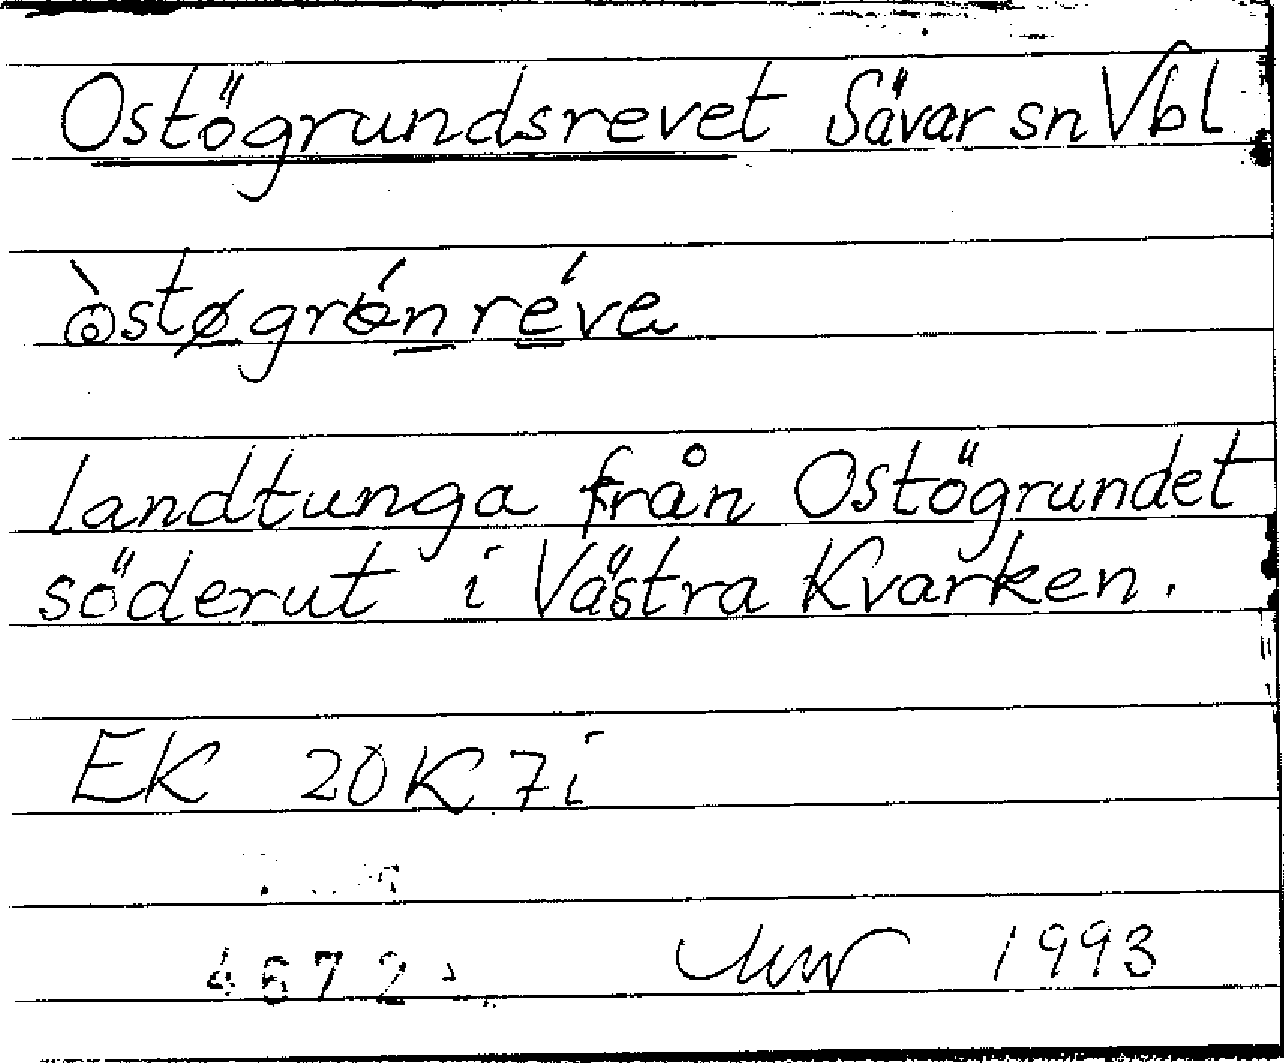 Ostögrundsrevet Sävar sn Vbl
òstøgrǿnréve
landtunga från Ostögrundet
söderut i Västra Kvarken.
EK 20K 7i
4672
1993